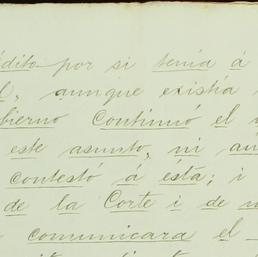 édito por si tenía á
, aunque existía
bierno continuó el
este asunto, ni
contestó á ésta; i
de la Corte i de
comunicara el